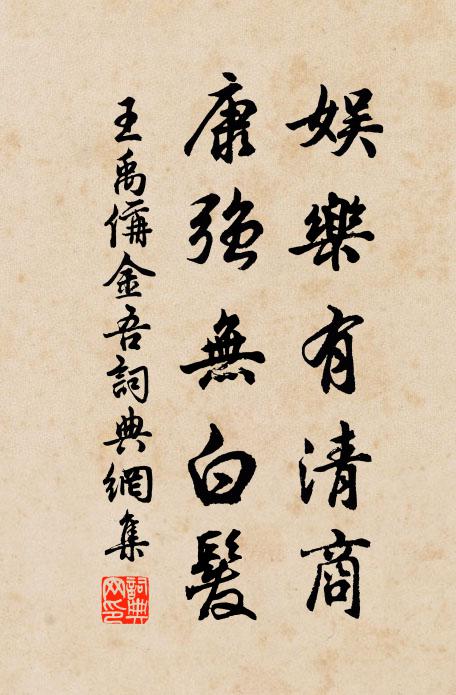 娛樂有清商
康強無白髮
王禹偁金吾詞典網集
詞典網印